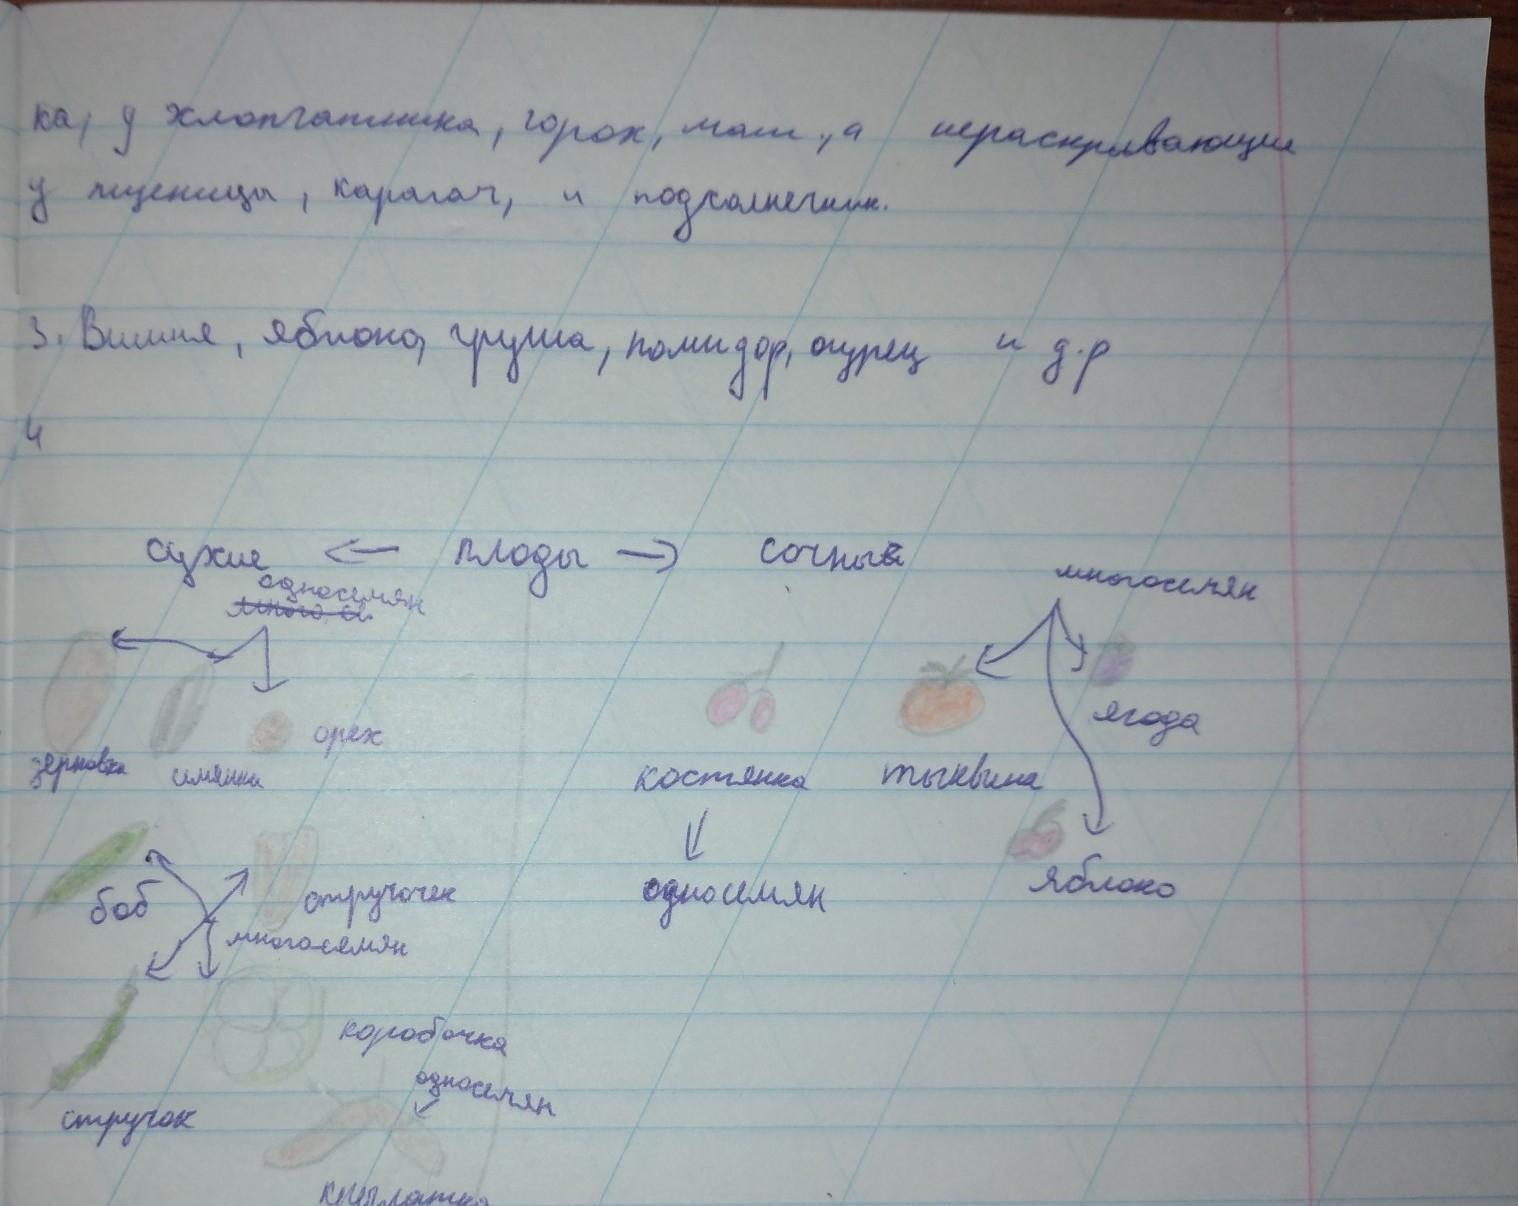 ка, у хлопчатника, горох, маш, а нераскрывающие
у пшеницы, карагач, и подсолнечник.
3. Вишня, яблоко, груша, помидор, огурец и д.р
4
сухие <— плоды —> сочный
односемян
многосемян
зерновка
семянка
орех
костянка
тыквина
ягода
яблоко
односемян
боб
стручочек
многосемян
стручок
коробочка
односемян
крылатка